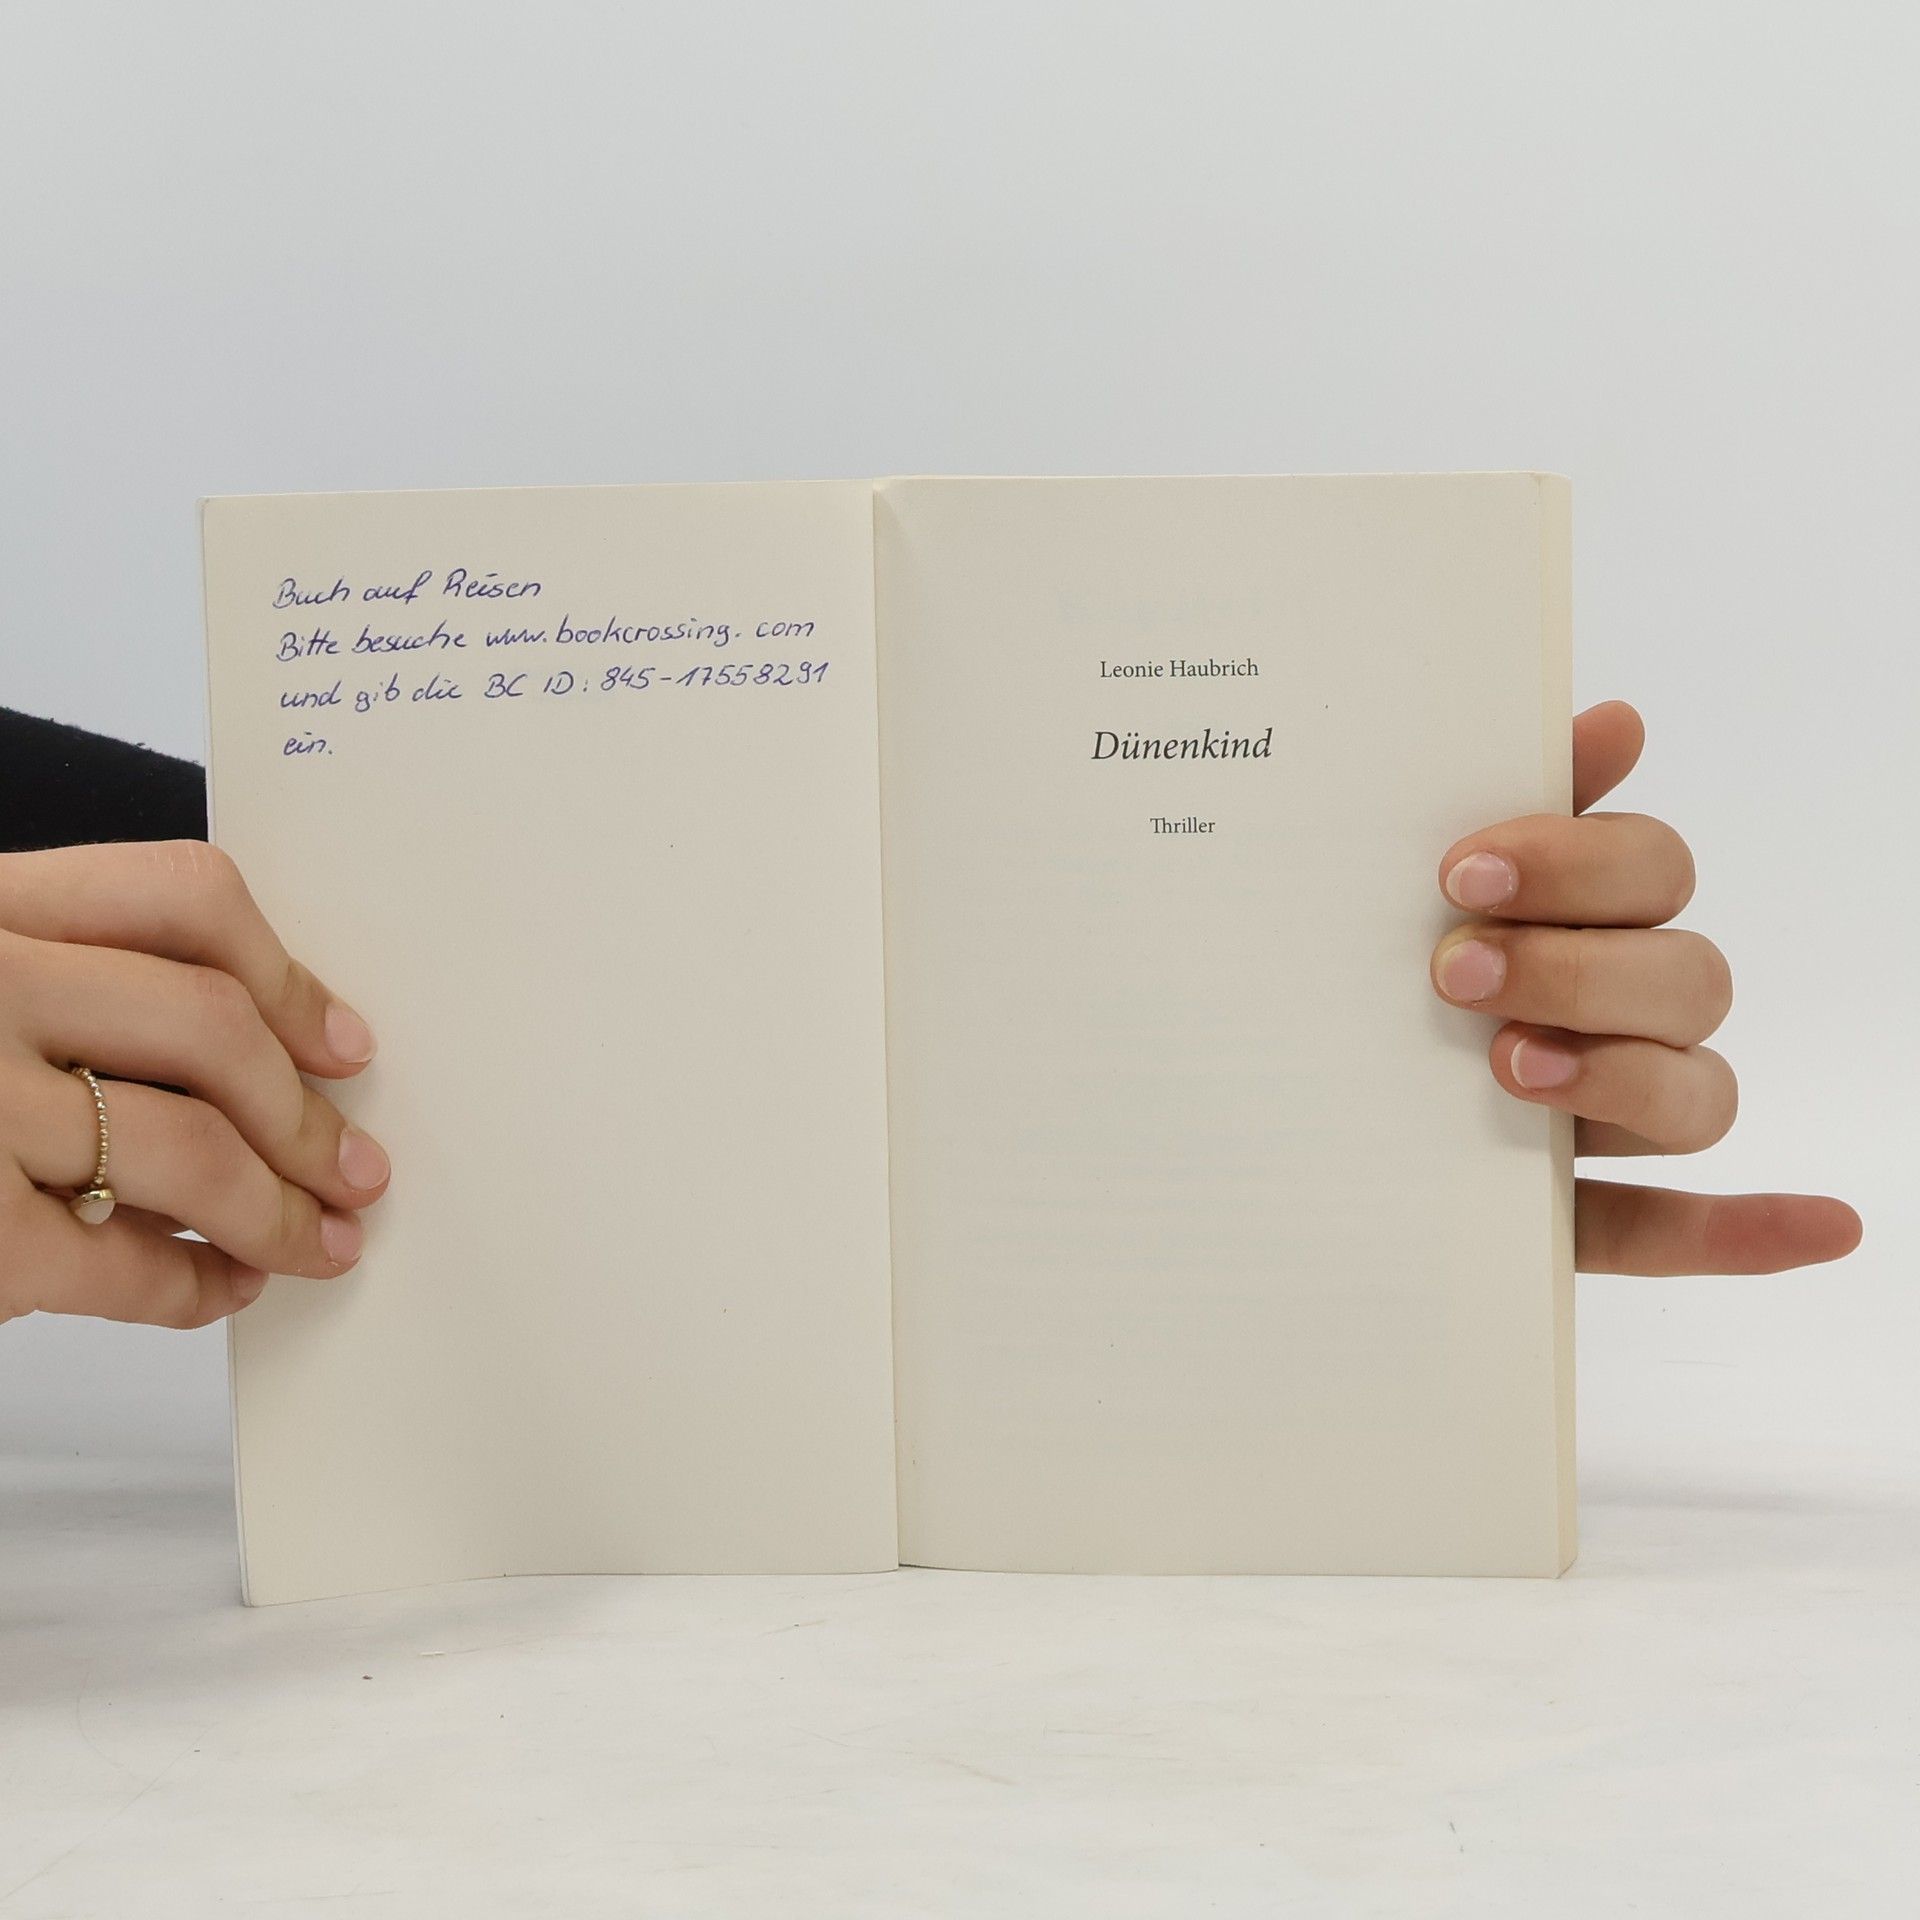 Buch auf Reisen
Bitte besuche www.bookcrossing.com
und gib die BC ID: 845-17558291
ein.
Leonie Haubrich
Dünenkind
Thriller